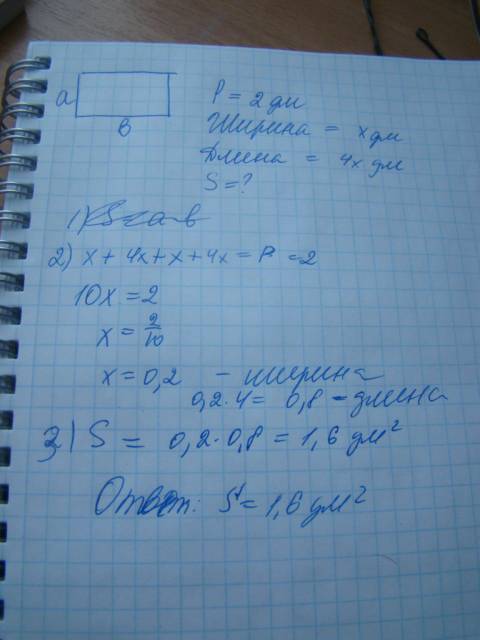 a
в
P = 2 дм
Ширина = x дм
Длина = 4x дм
S = ?
1) S = a в
2) x + 4x + x + 4x = P = 2
10x = 2
x = 2/10
x = 0,2 - ширина
0,2 · 4 = 0,8 - длина
3) S = 0,2 · 0,8 = 1,6 дм²
Ответ: S = 1,6 дм²